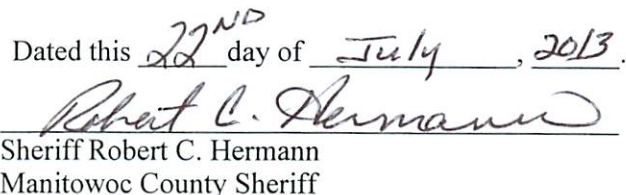 Dated this 22ND day of July, 2013.
Robert C. Hermann
Sheriff Robert C. Hermann
Manitowoc County Sheriff